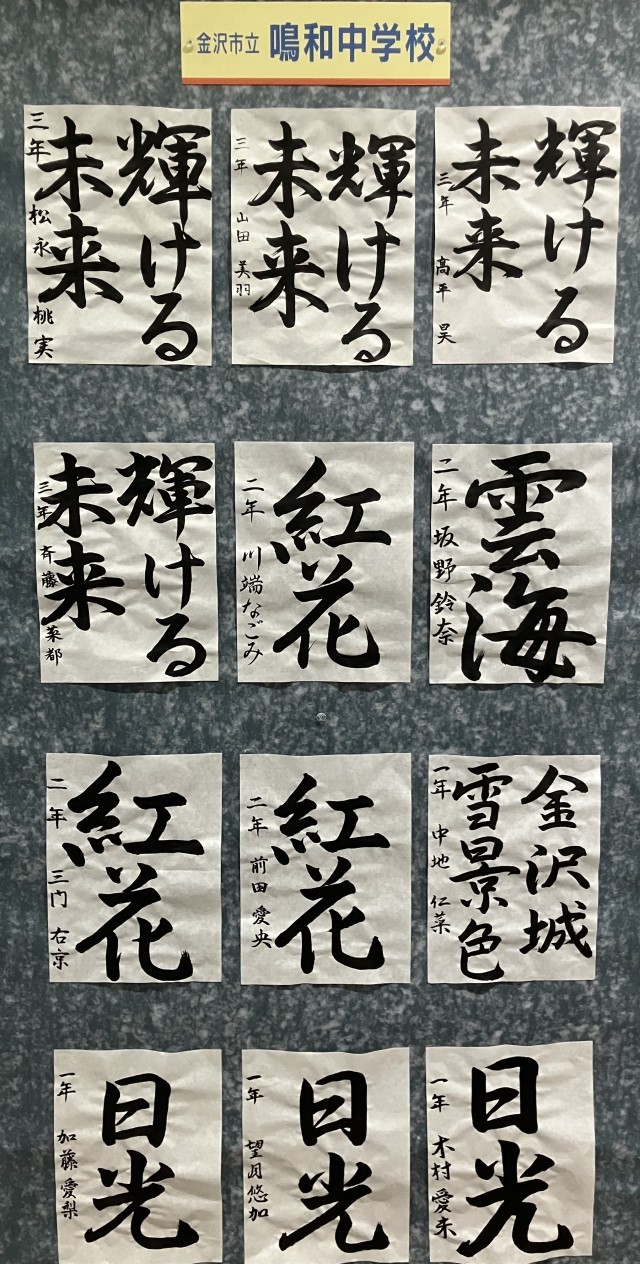 金沢市立 鳴和中学校
輝ける
未来
三年 高平 昊
輝ける
未来
三年 山田 美羽
輝ける
未来
三年 松永 桃実
雲海
二年 坂野鈴奈
紅花
二年 川端なごみ
輝ける
未来
三年 斉藤 菜都
金沢城
雪景色
一年 中地 仁菜
紅花
二年 前田 愛央
紅花
二年 三門 右京
日光
一年 木村 愛来
日光
一年 望月悠加
日光
一年 加藤 愛梨